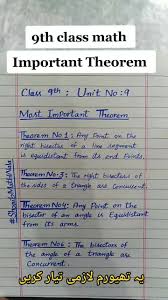 9th class math
Important Theorem
Class 9th : Unit No:9
Most Important Theorem
Theorem No 1: Any Point on the
right bisector of a line segment
is equidistant from its end Points.
Theorem No:3: The right bisectors of
the sides of a triangle are Concurrent.
Theorem No4: Any Point on the
bisector of an angle is Equidistant
from its arms.
Theorem No6: The bisectors of
the angle of a triangle are
Concurrent.
یہ تھیورم لازمی تیار کریں